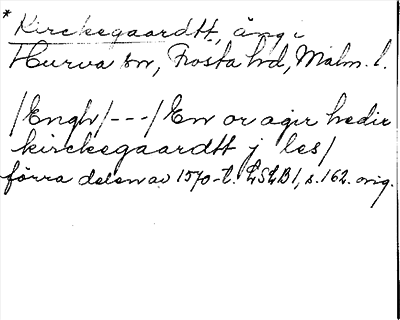 * Kirckegaardtt, äng i
Hurva sn, Frosta hd, Malm. l.
/Engh/---/En or agir hedir
kirckegaardtt j les/
förra delen av 1570-t. LSLB1, s.162. orig.